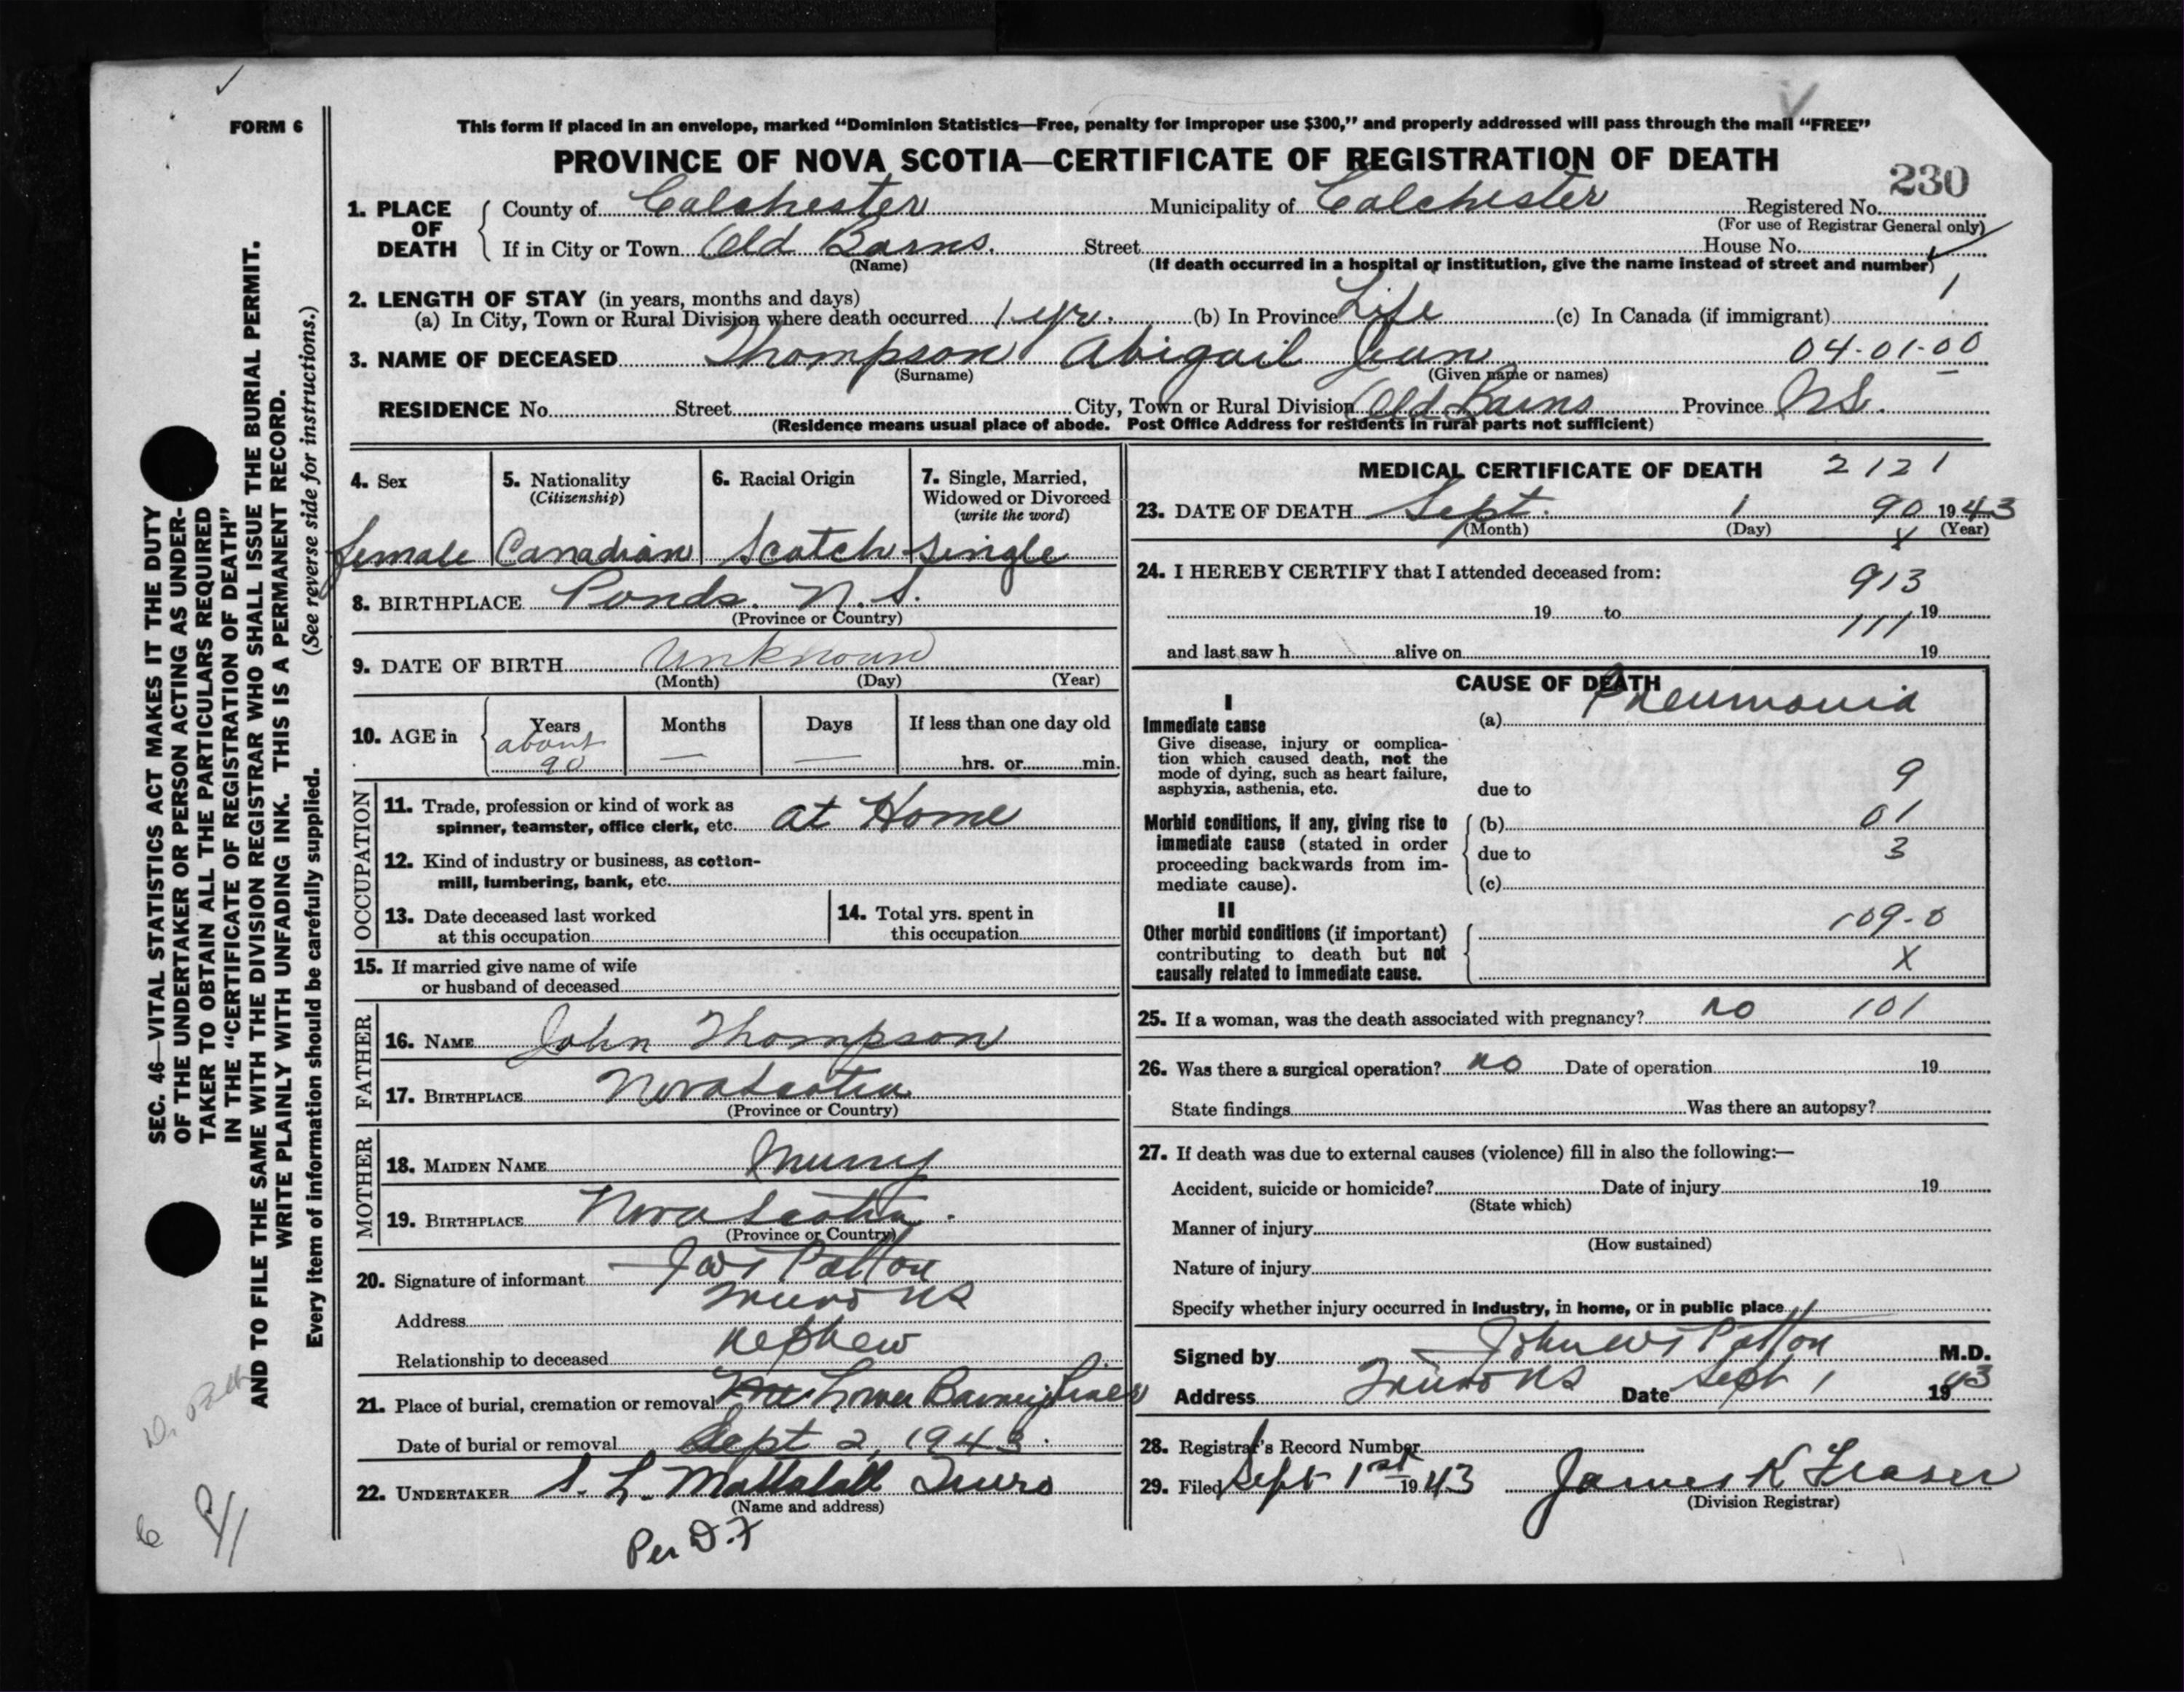 FORM 6
This form if placed in an envelope, marked “Dominion Statistics—Free, penalty for improper use $300,” and properly addressed will pass through the mail “FREE”
PROVINCE OF NOVA SCOTIA—CERTIFICATE OF REGISTRATION OF DEATH
230
1. PLACE OF DEATH
County of Colchester Municipality of Colchester Registered No.
(For use of Registrar General only)
If in City or Town Old Barns. Street House No.
(Name) (If death occurred in a hospital or institution, give the name instead of street and number)
1
2. LENGTH OF STAY (in years, months and days)
(a) In City, Town or Rural Division where death occurred 1 yr. (b) In Province Life (c) In Canada (if immigrant)
3. NAME OF DECEASED Thompson Abigail Jean 04-01-00
(Surname) (Given name or names)
RESIDENCE No. Street City, Town or Rural Division Old Barns Province N.S.
(Residence means usual place of abode. Post Office Address for residents in rural parts not sufficient)
4. Sex
female
5. Nationality
(Citizenship)
Canadian
6. Racial Origin
Scotch
7. Single, Married,
Widowed or Divorced
(write the word)
single
8. BIRTHPLACE Ponds. N.S.
(Province or Country)
9. DATE OF BIRTH Unknown
(Month) (Day) (Year)
10. AGE in
Years Months Days If less than one day old
about
90 — — hrs. or min.
OCCUPATION
11. Trade, profession or kind of work as
spinner, teamster, office clerk, etc. at Home
12. Kind of industry or business, as cotton-
mill, lumbering, bank, etc.
13. Date deceased last worked
at this occupation
14. Total yrs. spent in
this occupation
15. If married give name of wife
or husband of deceased
FATHER
16. NAME John Thompson
17. BIRTHPLACE Nova Scotia
(Province or Country)
MOTHER
18. MAIDEN NAME Murry
19. BIRTHPLACE Nova Scotia.
(Province or Country)
20. Signature of informant JWT Patton
Truro NS
Address
Relationship to deceased nephew
21. Place of burial, cremation or removal Lower
Date of burial or removal Sept 2, 1943.
22. UNDERTAKER S. L. Mattatall Truro
(Name and address)
Per D.F
MEDICAL CERTIFICATE OF DEATH 2121
23. DATE OF DEATH Sept. 1 90 1943
(Month) (Day) (Year)
X
24. I HEREBY CERTIFY that I attended deceased from:
913
19 to 19
111
and last saw h alive on 19
CAUSE OF DEATH
I
Immediate cause
Give disease, injury or complica-
tion which caused death, not the
mode of dying, such as heart failure,
asphyxia, asthenia, etc.
(a) Pneumonia
9
due to
Morbid conditions, if any, giving rise to
immediate cause (stated in order
proceeding backwards from im-
mediate cause).
(b) 01
due to 3
(c)
II
Other morbid conditions (if important)
contributing to death but not
causally related to immediate cause.
109-0
X
25. If a woman, was the death associated with pregnancy? no 101
26. Was there a surgical operation? no Date of operation 19
State findings Was there an autopsy?
27. If death was due to external causes (violence) fill in also the following:—
Accident, suicide or homicide? Date of injury 19
(State which)
Manner of injury
(How sustained)
Nature of injury
Specify whether injury occurred in industry, in home, or in public place
Signed by John W T Patton M.D.
Address Truro NS Date Sept 1 1943
28. Registrar's Record Number
29. Filed Sept 1st 1943 James K Fraser
(Division Registrar)
SEC. 46—VITAL STATISTICS ACT MAKES IT THE DUTY
OF THE UNDERTAKER OR PERSON ACTING AS UNDER-
TAKER TO OBTAIN ALL THE PARTICULARS REQUIRED
IN THE “CERTIFICATE OF REGISTRATION OF DEATH”
AND TO FILE THE SAME WITH THE DIVISION REGISTRAR WHO SHALL ISSUE THE BURIAL PERMIT.
WRITE PLAINLY WITH UNFADING INK. THIS IS A PERMANENT RECORD.
Every item of information should be carefully supplied. (See reverse side for instructions.)